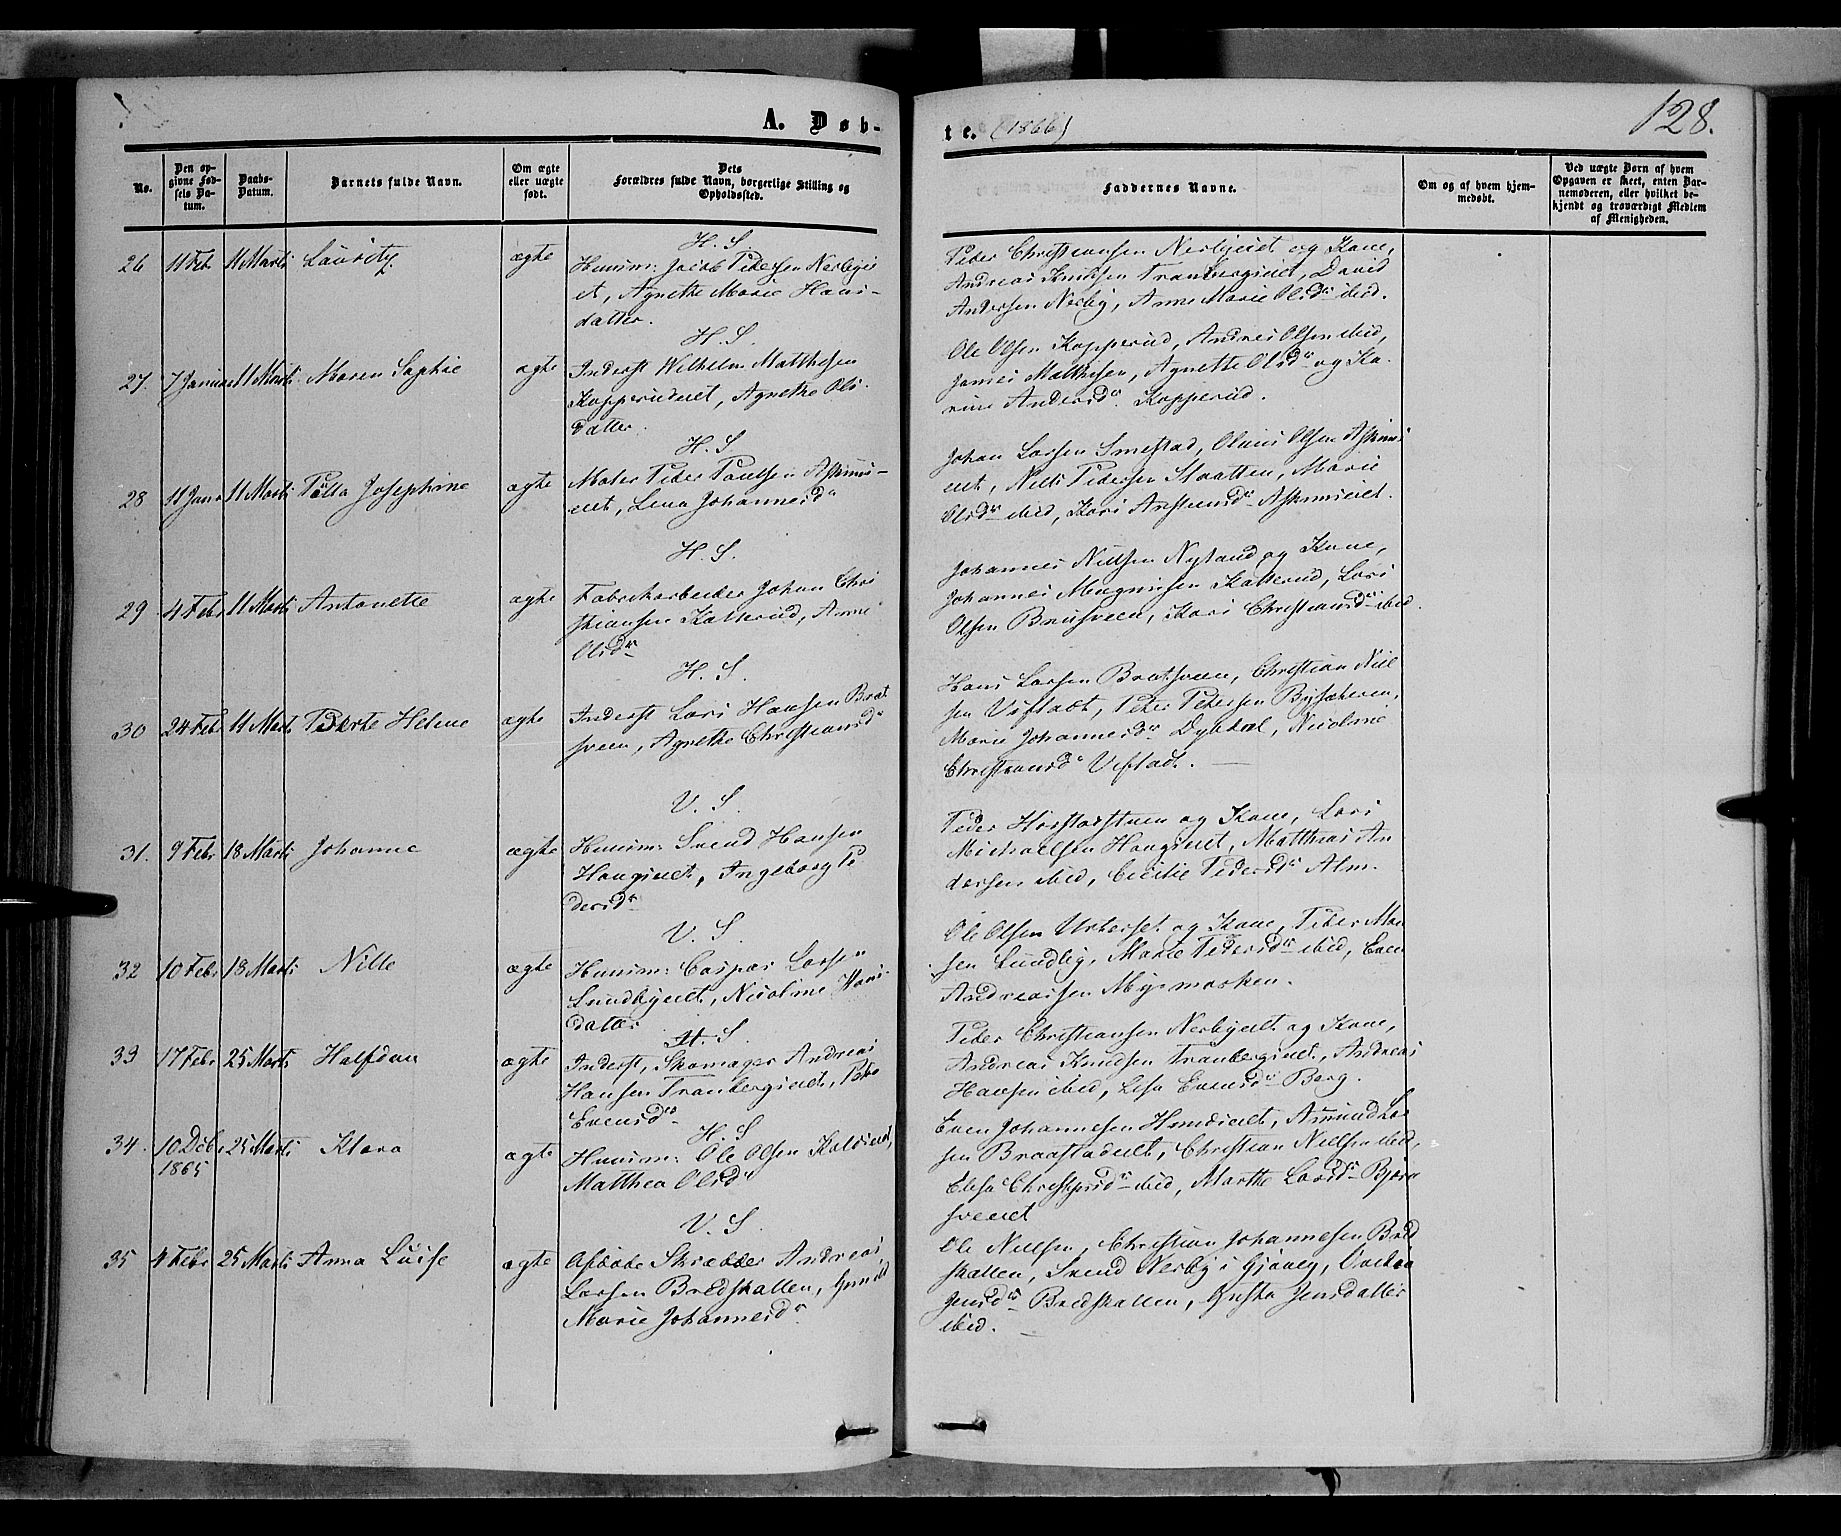 A. Døb-
te. (1866)
128.
No.
Den op-
givne Fød-
sels Da-
tum.
Daabs-
Datum.
Barnets fulde Navn.
Om ægte
eller uægte
født.
Dets
Forældres fulde Navn, borgerlige Stilling og
Opholdssted.
Faddernes Navne.
Om og af hvem hjem-
medøbt.
Ved uægte Børn af hvem
Opgaven er skeet, enten Bar-
nemoderen, eller hvilket be-
kjendt og troværdigt Medlem
af Menigheden.
26 11 Feb 11 Marti Lauritz. ægte
H. S.
Huusm: Jacob Pedersen Nerbyei
et, Agnethe Marie Hans-
datter.
Peder Christiansen Nerbyeiet og Kone,
Andreas Knudsen Tranbergeiet, David
Andersen Nerby, Anne Marie Olsdr ibid.
27. 7 Januar 11 Marti Maren Sophie ægte
H. S.
Inderst Wilhelm Matthesen
Kopperudeiet, Agnethe Ols-
datter.
Ole Olsen Kopperud, Andreas Olsen ibid,
Johannes Mathisen, Agnethe Olsdr og Ka-
rine Andersdr Kopperud.
28 11 Janr 11 Marti Josephine ægte
H. S.
Peder Paulsen
eiet, Lena Johannesdr
Johan Larsen Smestad, Olaus Olsen
eiet, Nils Pedersen Slaatten, Marie
Olsdr ibid, Kari
29 4 Febr 11 Marti Antonette ægte
H. S.
Fabrikarbeider Johan Chri
stiansen Kallerud, Anne
Olsdr
Johannes Nielsen Nyland og Kone,
Johannes Magnusen Kallerud, Lars
Olsen Brusveen, Kari Christiansdr ibid.
30 24 Febr 11 Marti Helene ægte
H. S.
Inderst Lars Hansen Brat
sveen, Agnethe Christiansdr
Hans Larsen Bratsveen, Christian Niel
sen Vestadt, Peter Petersen
Marie Johannesdr Dybdal, Nicoline
Christiansdr Vestadt.
31. 9 Febr 18 Marti Johanne ægte
V. S.
Huusm: Svend Hansen
Haugseiet, Ingeborg Pe
dersdr
Peder Horstadstuen og Kone, Lars
Michaelsen Haugeiet, Matthias An
dersen ibid, Cicilie Pedersdr Alm.
32 10 Febr 18 Marti Nille ægte
V. S.
Huusm: Caspar Larsen
Lundbyeiet, Nicoline Hans-
datter
Ole Olsen og Kone, Peder Han
sen Lundby, Marte Pedersdr ibid, Even
Andreassen
33 17 Febr 25 Marti Halfdan ægte
H. S.
Inderst, Skomager Andreas
Hansen Tranbergeiet,
Evensdr
Peder Christiansen Nerbyeiet og Kone,
Andreas Knudsen Tranbergeiet, Andreas
Hansen ibid, Lisa Evensdr Berg.
34. 10 Decbr 1865 25 Marti Klara ægte
H. S
Huusm: Ole Olsen
Matthea Olsdr
Even Johannesen Amund La-
sen Braastadeiet, Christian Nielsen ibid,
ibid, Marthe Larsdr Bjørn
sveeiet
35 4 Febr 25 Marti Anna Luise ægte
V. S.
Afdøde Skrædder Andreas
Larsen Bredskallen,
Marie Johannesdr
Ole Nielsen, Christian Johannesen Bred
skallen, Svend Nerby i Gjøvig,
Jensdr Bredskallen, Jensdatter
ibid.